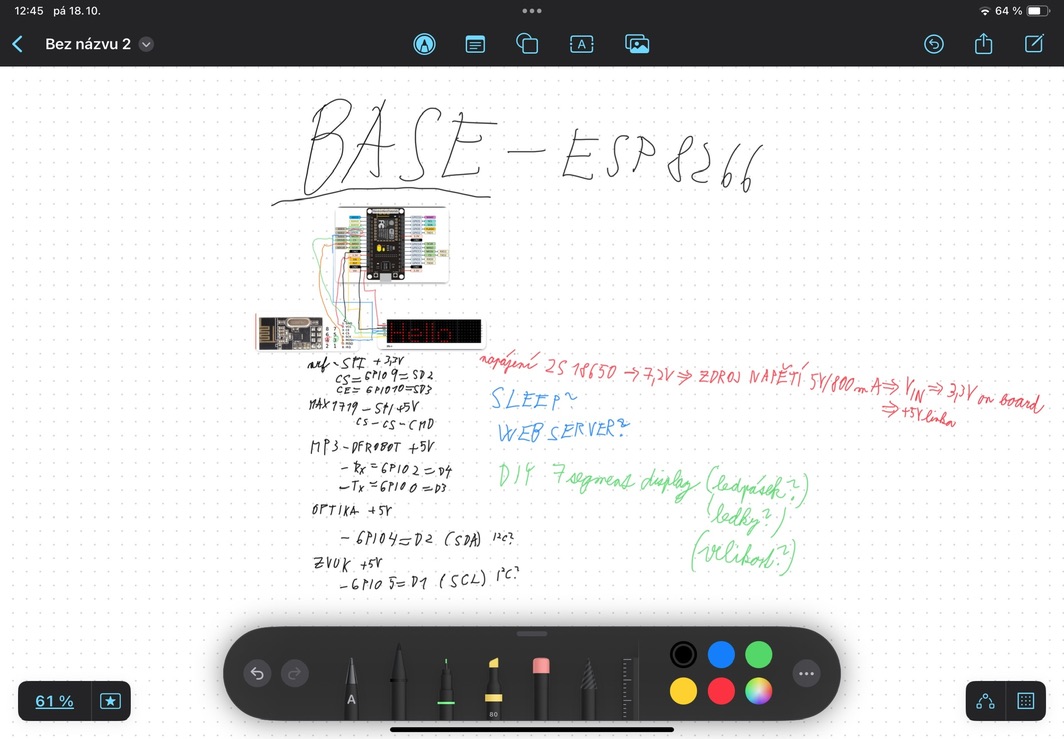 12:45 pá 18.10.
64 %
Bez názvu 2
BASE - ESP8266
Hello
nrf - SPI +3,3V
CS = GPIO9 = SD2
CE = GPIO10 = SD3
MAX1719 - SPI +5V
CS - CS - CMD
MP3 - DFROBOT +5V
- Rx = GPIO2 = D4
- Tx = GPIO0 = D3
OPTIKA +5V
- GPIO4 = D2 (SDA) I²C?
ZVUK +5V
- GPIO5 = D1 (SCL) I²C?
napájení 2S 18650 → 7,2V ⇒ ZDROJ NAPĚTÍ 5V/800mA ⇒ VIN ⇒ 3,3V on board
⇒ +5V linka
SLEEP?
WEBSERVER?
DIY 7segment display (ledpásek?)
(ledky?)
(velikost?)
A
80
61 %